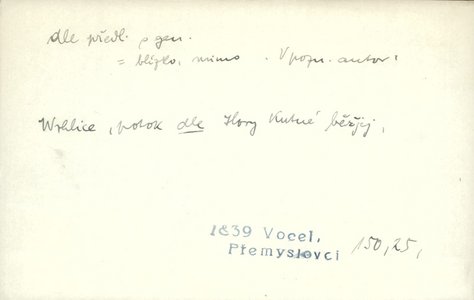 dle předl. s gen.
= blízko, mimo . V pozn. autor:
Wrhlice, potok dle Hory Kutné běžjcj,
1839 Vocel,
Přemyslovci 150,25,